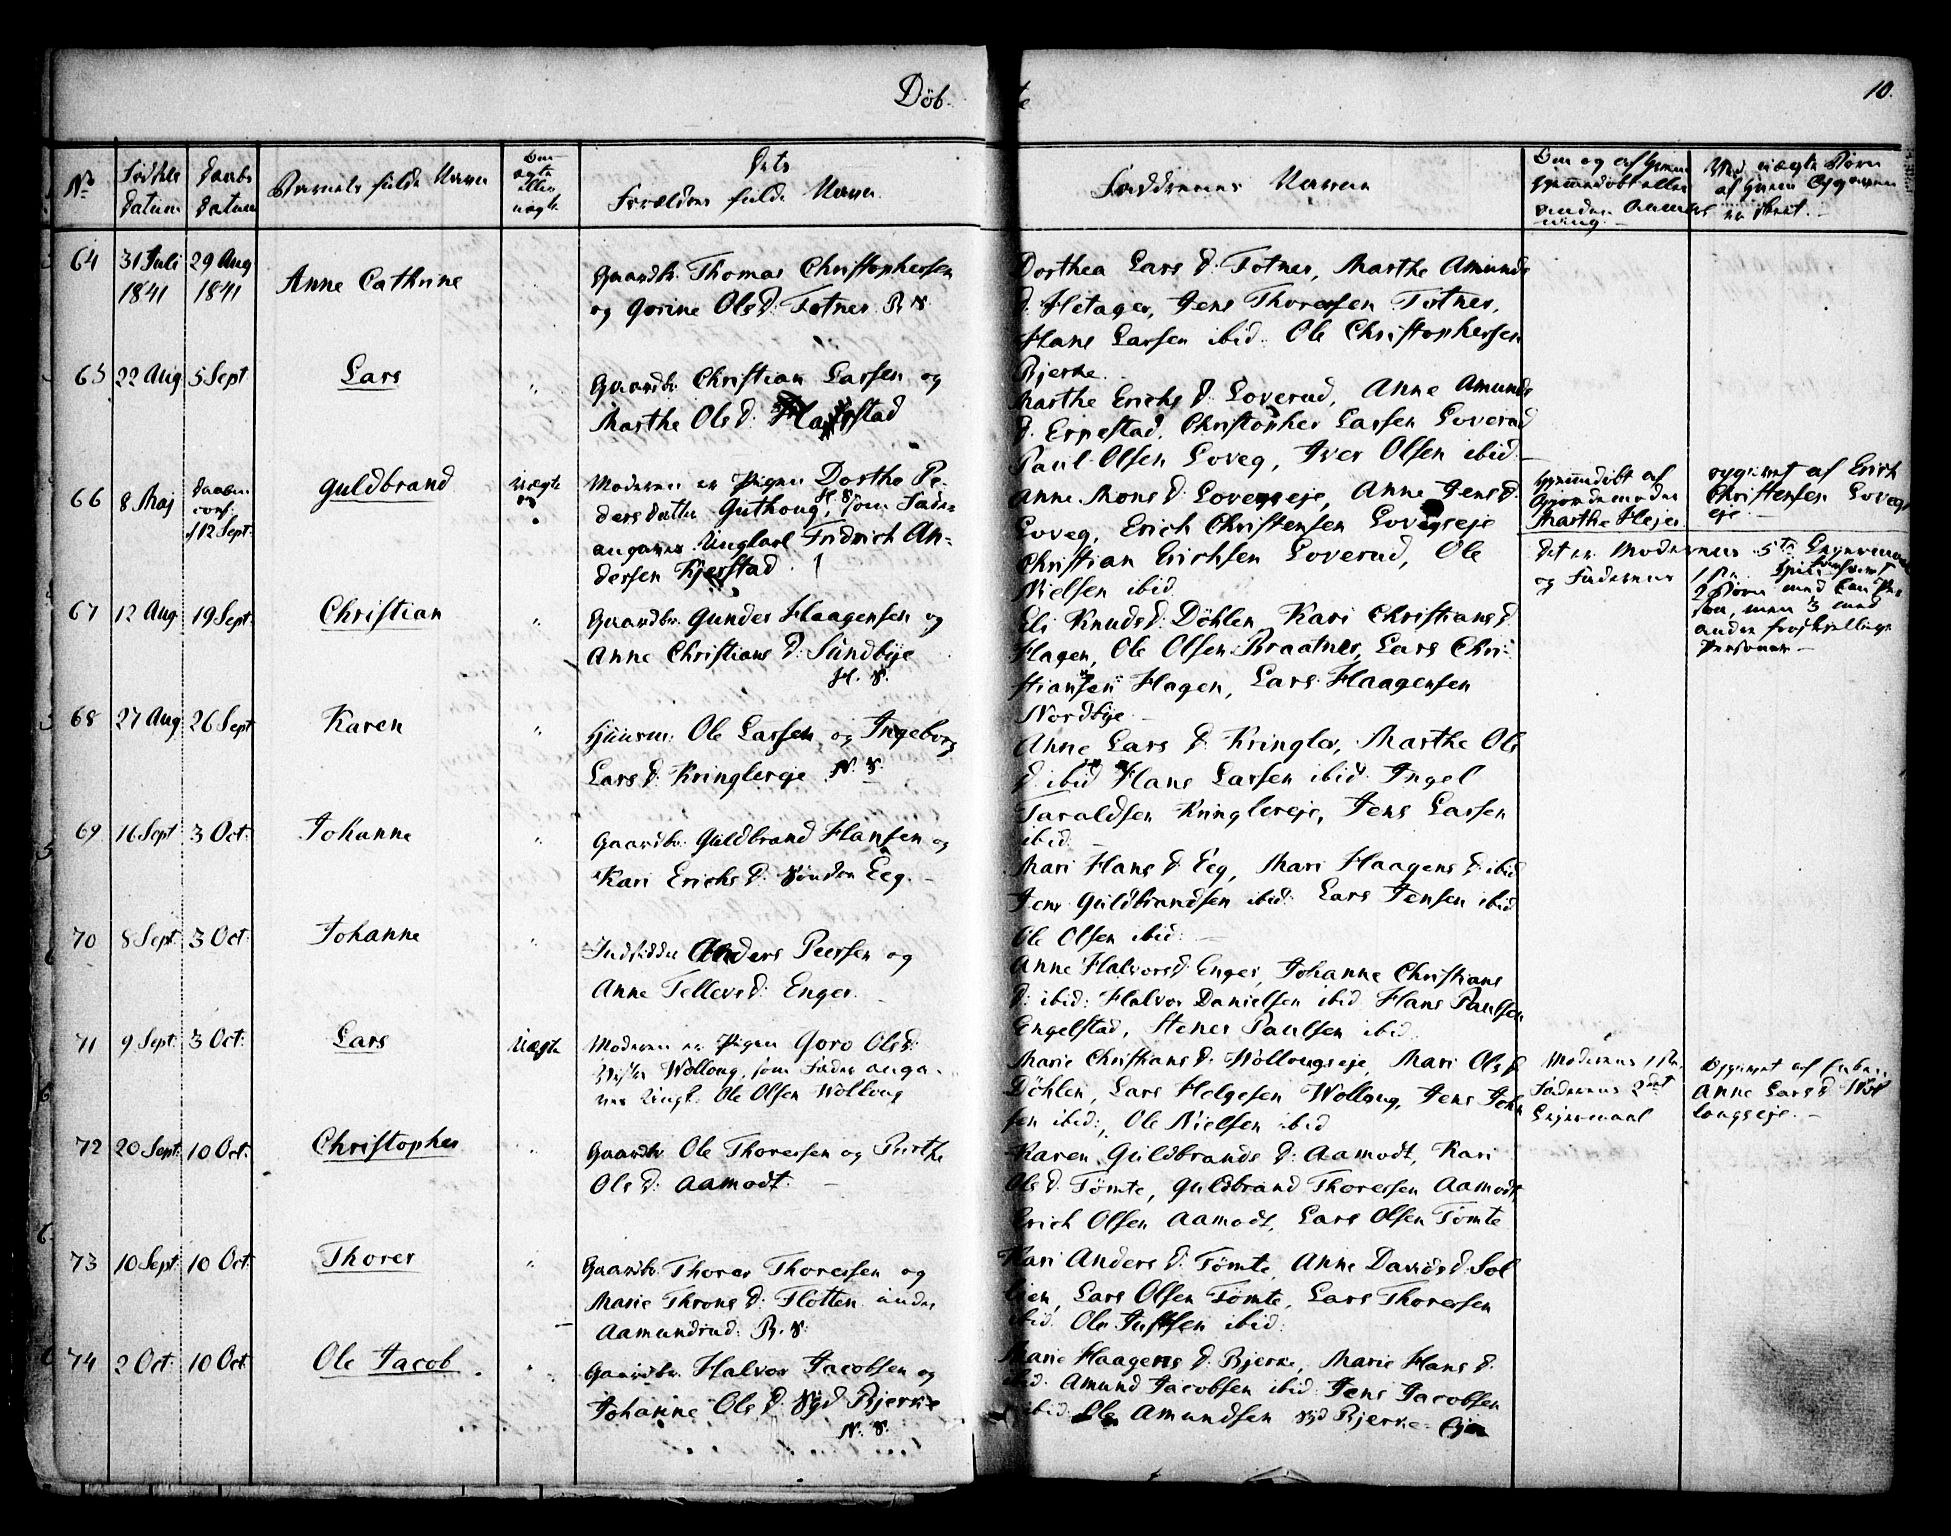 Döbte
10.
No
Fødsels datum
Daabs datum
Barnets fulde Navn
Om ægte eller uægte
Dets Forældres fulde Navn.
Faddernes Navne
64
31 Juli 1841
29 Aug 1841
Anne Cathrine
Gaardbr. Thomas Christophersen
og Gorine Olsd: Totner R. S.
Dorthea Larsd: Totner, Marthe Amunds
d: Hetager, Jens Thoresen Totner,
Hans Larsen ibid: Ole Christophersen
Bjerke.
65
22 Aug
5 Sept
Lars
Gaardbr. Christian Larsen og
Marthe Olsd:
Marthe Erichsd: Loverud, Anne Amunds
d: Erpestad, Christopher Larsen Loverud
Paul Olsen Loveg, Iver Olsen ibid:
66
8 Maj
Daaben conf: 12 Sept.
Guldbrand
uægte
Moderen er Pigen Dorthe Pe-
dersdatter Guthoug, H. S. som Fader
angaves Ungkarl Fridrich An-
dersen Kjerstad.
Anne Monsd: Lovegseje, Anne Jensd:
Loveg, Erich Christensen Lovegseje
Christian Erichsen Loverud, Ole
Nielsen ibid.
Hjemmedöbt af
Gjordemoder
Marthe Hejer
opgivet af Erich
Christensen Lovegs
eje
Det er Moderens 5te Lejermaal
og Faderens 1ste.
2 Börn med een Per
son, men 3 med
andre forskjellige
Personer —
67
12 Aug
19 Sept.
Christian
Gaardbr. Gunder Haagensen og
Anne Christiansd: Sundbye
H. S.
Eli Knudsd: Döhlen, Kari Christiansd:
Hagen, Ole Olsen Braatner, Lars Chri-
stiansen Hagen, Lars Haagensen
Nordbye —
68
27 Aug
26 Sept
Karen
Huusm: Ole Larsen og Ingeborg
Larsd: Kringlereje N. S.
Anne Larsd: Kringler, Marthe Ols
d: ibid Hans Larsen ibid: Ingel
Taraldsen Kringlereje, Jens Larsen
ibid: —
69
16 Sept
3 Oct:
Johanne
Gaardbr. Guldbrand Hansen og
Kari Erichsd: Søndre Eeg. —
Mari Hansd: Eeg, Mari Haagensd: ibid
Jens Guldbrandsen ibid: Lars Jensen ibid
Ole Olsen ibid: —
70
8 Sept:
3 Oct:
Johanne
Indsidder Anders Peersen og
Anne Tellevsd: Enger. —
Anne Halvorsd: Enger, Johanne Christians
d: ibid: Halvor Danielsen ibid. Hans Paulsen
Engelstad, Stener Paulsen ibid.
71
9 Sept:
3 Oct:
Lars
Uægte
Moderen er Pigen Goro Olsd:
Wolloug, som Fader anga-
ves Ungk. Ole Olsen Wolloug
Marie Christiansd: Wollougseje, Mari Olsd:
Döhlen, Lars Helgesen Wolloug, Jens John
sen ibid:, Ole Nielsen ibid
Moderens 1ste,
Faderens 2det
Lejermaal
Opgivet af
Anne Larsd: Wol
lougseje. —
72
20 Sept:
10 Oct:
Christopher
Gaardbr Ole Thoresen og Berthe
Olsd: Aamodt. —
Karen Guldbrandsd: Aamodt, Kari
Olsd: Tömte, Guldbrand Thoresen Aamodt
Erich Olsen Aamodt, Lars Olsen Tömte
73
10 Sept
10 Oct:
Thorer
Gaardbr. Thorer Thoresen og
Marie Thronsd: Flotten under
Aamundrud: R. S.
Kari Andersd: Tömte, Anne Davidsd: Sol
lien, Lars Olsen Tömte, Lars Thoresen
ibid. Ole Justsen ibid:
74
2 Oct:
10 Oct:
Ole Jacob
Gaardbr. Halvor Jacobsen og
Johanne Olsd: Syd Bjerke
N. S.
Marie Haagensd: Bjerke, Marie Hansd:
ibid. Amund Jacobsen ibid: Jens Jacobsen
ibid: Ole Amundsen Syd Bjerke. Eje